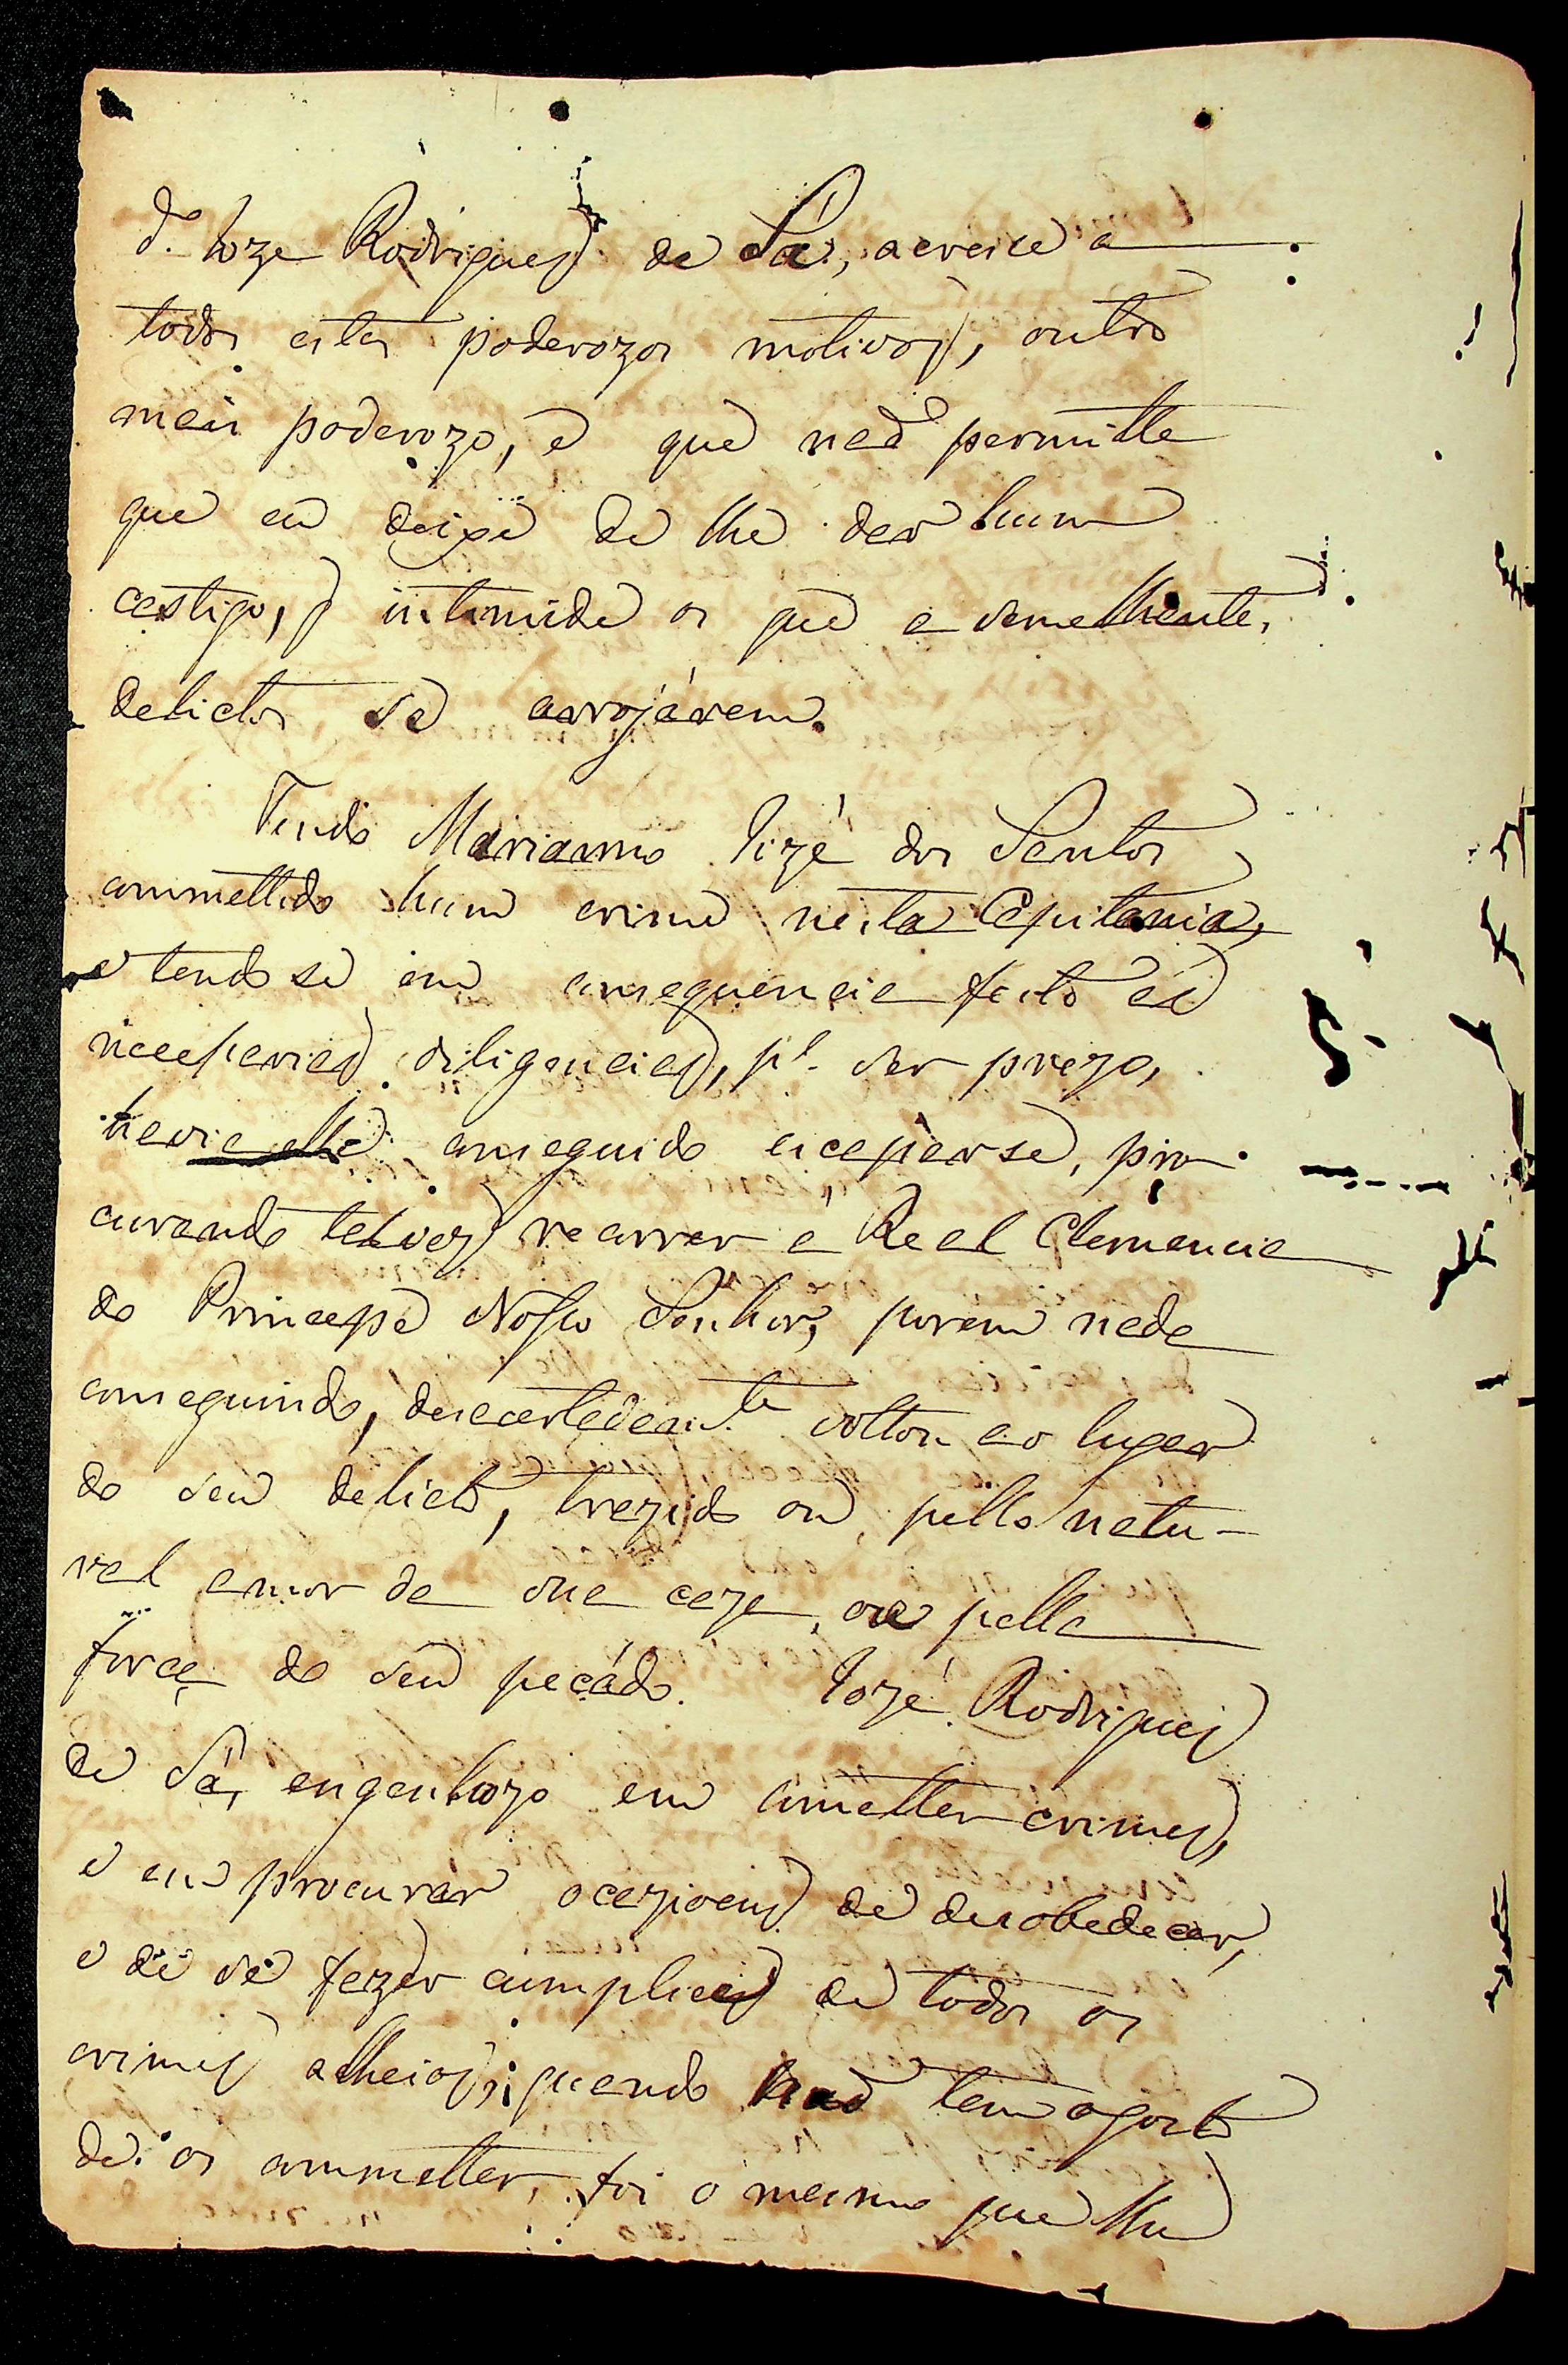 d. Joze Rodrigues de Sá, acresce a
todos estes poderozos motivos, outro
mais poderozo, e que naõ permitte
que eu deixe de lhe dar hum
castigo, q̃ intimide os que a semelhantes
delictos se arrojárem.
Tendo Marianno Jozé dos Santos
commettido hum crime nesta Capitania,
e tendo se em consequencia feito as
necessarias diligencias, pª. ser prezo,
havia elle conseguido escaparse, pro-
curando talvez recorrer a Real Clemencia
do Principe Nosso Senhor, porem nada
conseguindo, desacertadamte. voltou ao lugar
do seu delicto, trazido ou pello natu-
ral amor de sua caza, ou pella
força do seu pecádo. Jozé Rodrigues
de Sá, engenhozo em cometter crimes,
e em procurar ocazioens de desobedecer,
e de se fazer cumplice de todos os
crimes alheios, quando naõ tem o gosto
de os commetter, foi o mesmo que lhe